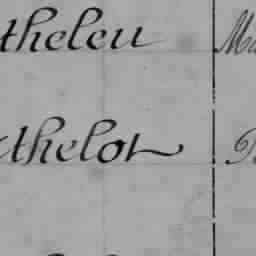 theleu Ma
thelot